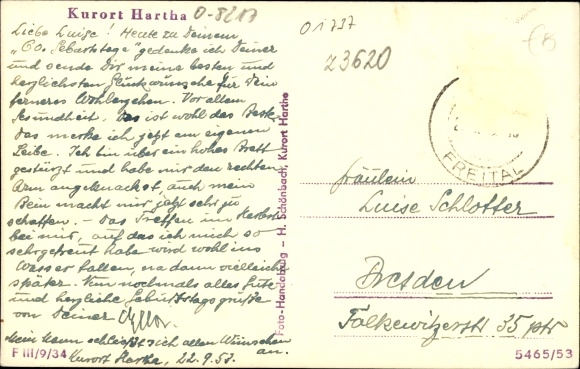 Kurort Hartha
O-8217
01737
z3620
Liebe Luise! Heute zu Deinem
"60. Geburtstage" gedenke ich Deiner
und sende Dir meine besten und
herzlichsten Glückwünsche für Dein
ferneres Wohlergehen. Vor allem
Gesundheit. Das ist wohl das Beste
das merke ich jetzt am eigenen
Leibe. Ich bin über ein hohes Brett
gestürzt und habe mir den rechten
Arm angeknackst, auch mein
Bein macht mir jetzt sehr zu
schaffen. – Das Treffen im Herbste
bei mir, auf das ich mich so
sehr gefreut habe wird wohl ins
Wasser fallen, na dann vielleicht
später. Nun nochmals alles Gute
und herzliche Geburtstagsgrüße
von Deiner
Mein Mann schließt sich allen Wünschen
an.
Kurort Hartha, 22.9.57.
F III/9/34
Foto-Handabzug – H. Schönbach, Kurort Hartha
FREITAL
Fräulein
Luise Schlotter
Dresden
Falkewitzerstr 35 ptr
5465/53